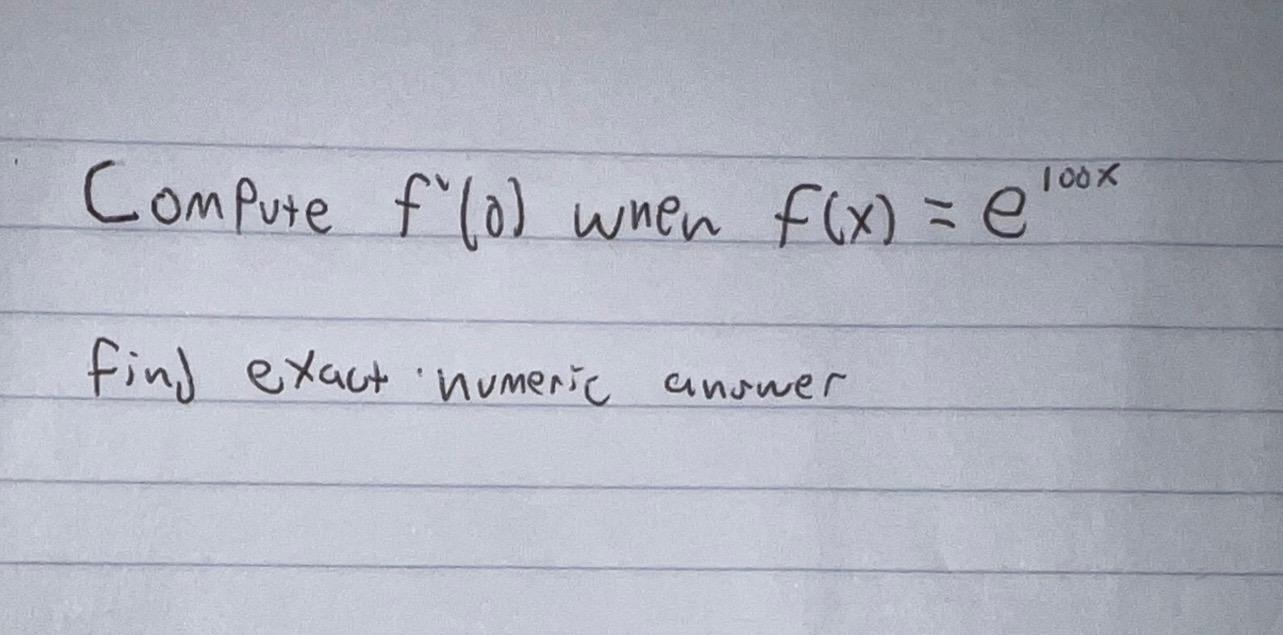 Compute f'(0) when f(x) = e^100x
find exact numeric answer